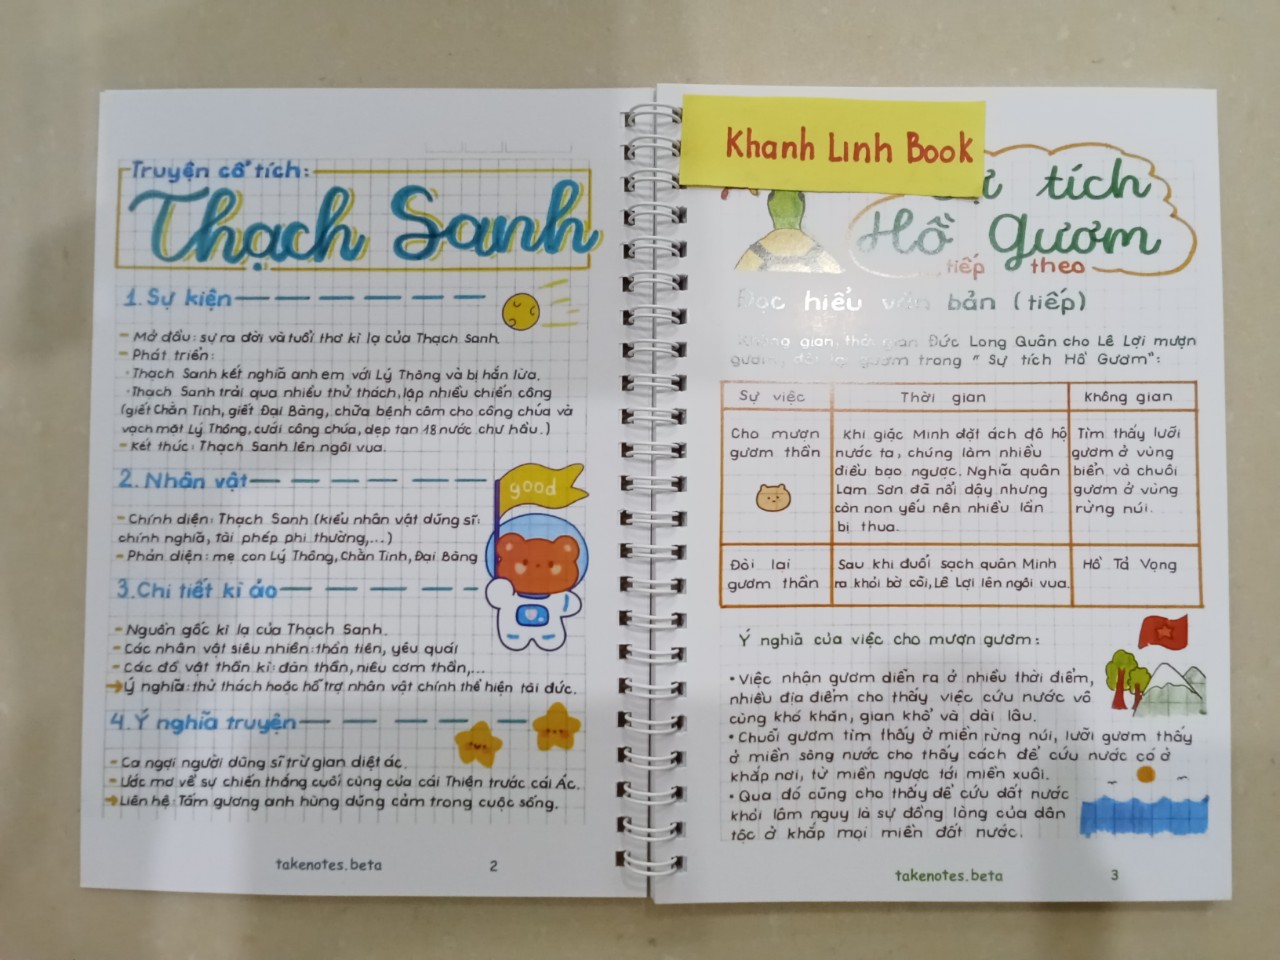 Truyện cổ tích:
Thạch Sanh
1. Sự kiện
- Mở đầu: sự ra đời và tuổi thơ kì lạ của Thạch Sanh.
- Phát triển:
· Thạch Sanh kết nghĩa anh em với Lý Thông và bị hắn lừa.
· Thạch Sanh trải qua nhiều thử thách, lập nhiều chiến công
(giết Chằn Tinh, giết Đại Bàng, chữa bệnh câm cho công chúa và
vạch mặt Lý Thông, cưới công chúa, dẹp tan 18 nước chư hầu.)
- Kết thúc: Thạch Sanh lên ngôi vua.
2. Nhân vật
good
- Chính diện: Thạch Sanh (kiểu nhân vật dũng sĩ:
chính nghĩa, tài phép phi thường,...)
- Phản diện: mẹ con Lý Thông, Chằn Tinh, Đại Bàng
3. Chi tiết kì ảo
- Nguồn gốc kì lạ của Thạch Sanh.
- Các nhân vật siêu nhiên: thần tiên, yêu quái
- Các đồ vật thần kì: đàn thần, niêu cơm thần,...
→ Ý nghĩa: thử thách hoặc hỗ trợ nhân vật chính thể hiện tài đức.
4. Ý nghĩa truyện
- Ca ngợi người dũng sĩ trừ gian diệt ác.
- Ước mơ về sự chiến thắng cuối cùng của cái Thiện trước cái Ác.
→ Liên hệ: Tấm gương anh hùng dũng cảm trong cuộc sống.
takenotes.beta 2
Khanh Linh Book
tích
Hồ Gươm
tiếp theo
Đọc hiểu văn bản (tiếp)
Không gian, thời gian Đức Long Quân cho Lê Lợi mượn
gươm, đòi lại gươm trong " Sự tích Hồ Gươm":
Sự việc Thời gian Không gian
Cho mượn
gươm thần
Khi giặc Minh đặt ách đô hộ
nước ta, chúng làm nhiều
điều bạo ngược. Nghĩa quân
Lam Sơn đã nổi dậy nhưng
còn non yếu nên nhiều lần
bị thua.
Tìm thấy lưỡi
gươm ở vùng
biển và chuôi
gươm ở vùng
rừng núi.
Đòi lại
gươm thần
Sau khi đuổi sạch quân Minh
ra khỏi bờ cõi, Lê Lợi lên ngôi vua.
Hồ Tả Vọng
Ý nghĩa của việc cho mượn gươm:
• Việc nhận gươm diễn ra ở nhiều thời điểm,
nhiều địa điểm cho thấy việc cứu nước vô
cùng khó khăn, gian khổ và dài lâu.
• Chuôi gươm tìm thấy ở miền rừng núi, lưỡi gươm thấy
ở miền sông nước cho thấy cách để cứu nước có ở
khắp nơi, từ miền ngược tới miền xuôi.
• Qua đó cũng cho thấy để cứu đất nước
khỏi lâm nguy là sự đồng lòng của dân
tộc ở khắp mọi miền đất nước.
takenotes.beta 3